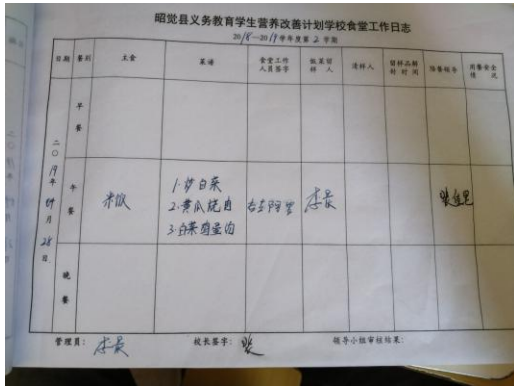 昭觉县义务教育学生营养改善计划学校食堂工作日志
2018—2019学年度第2学期
日期 餐别 主食 菜谱 食堂工作人员签字 饭菜留样人 清样人 留样品解封时间 陪餐领导 用餐安全情况
二〇19年 月28日
早餐
午餐 米饭 1.炒白菜
2.黄瓜烧肉
3.白菜鸡蛋汤
李晨
晚餐
管理员：李晨 校长签字： 领导小组审核结果：